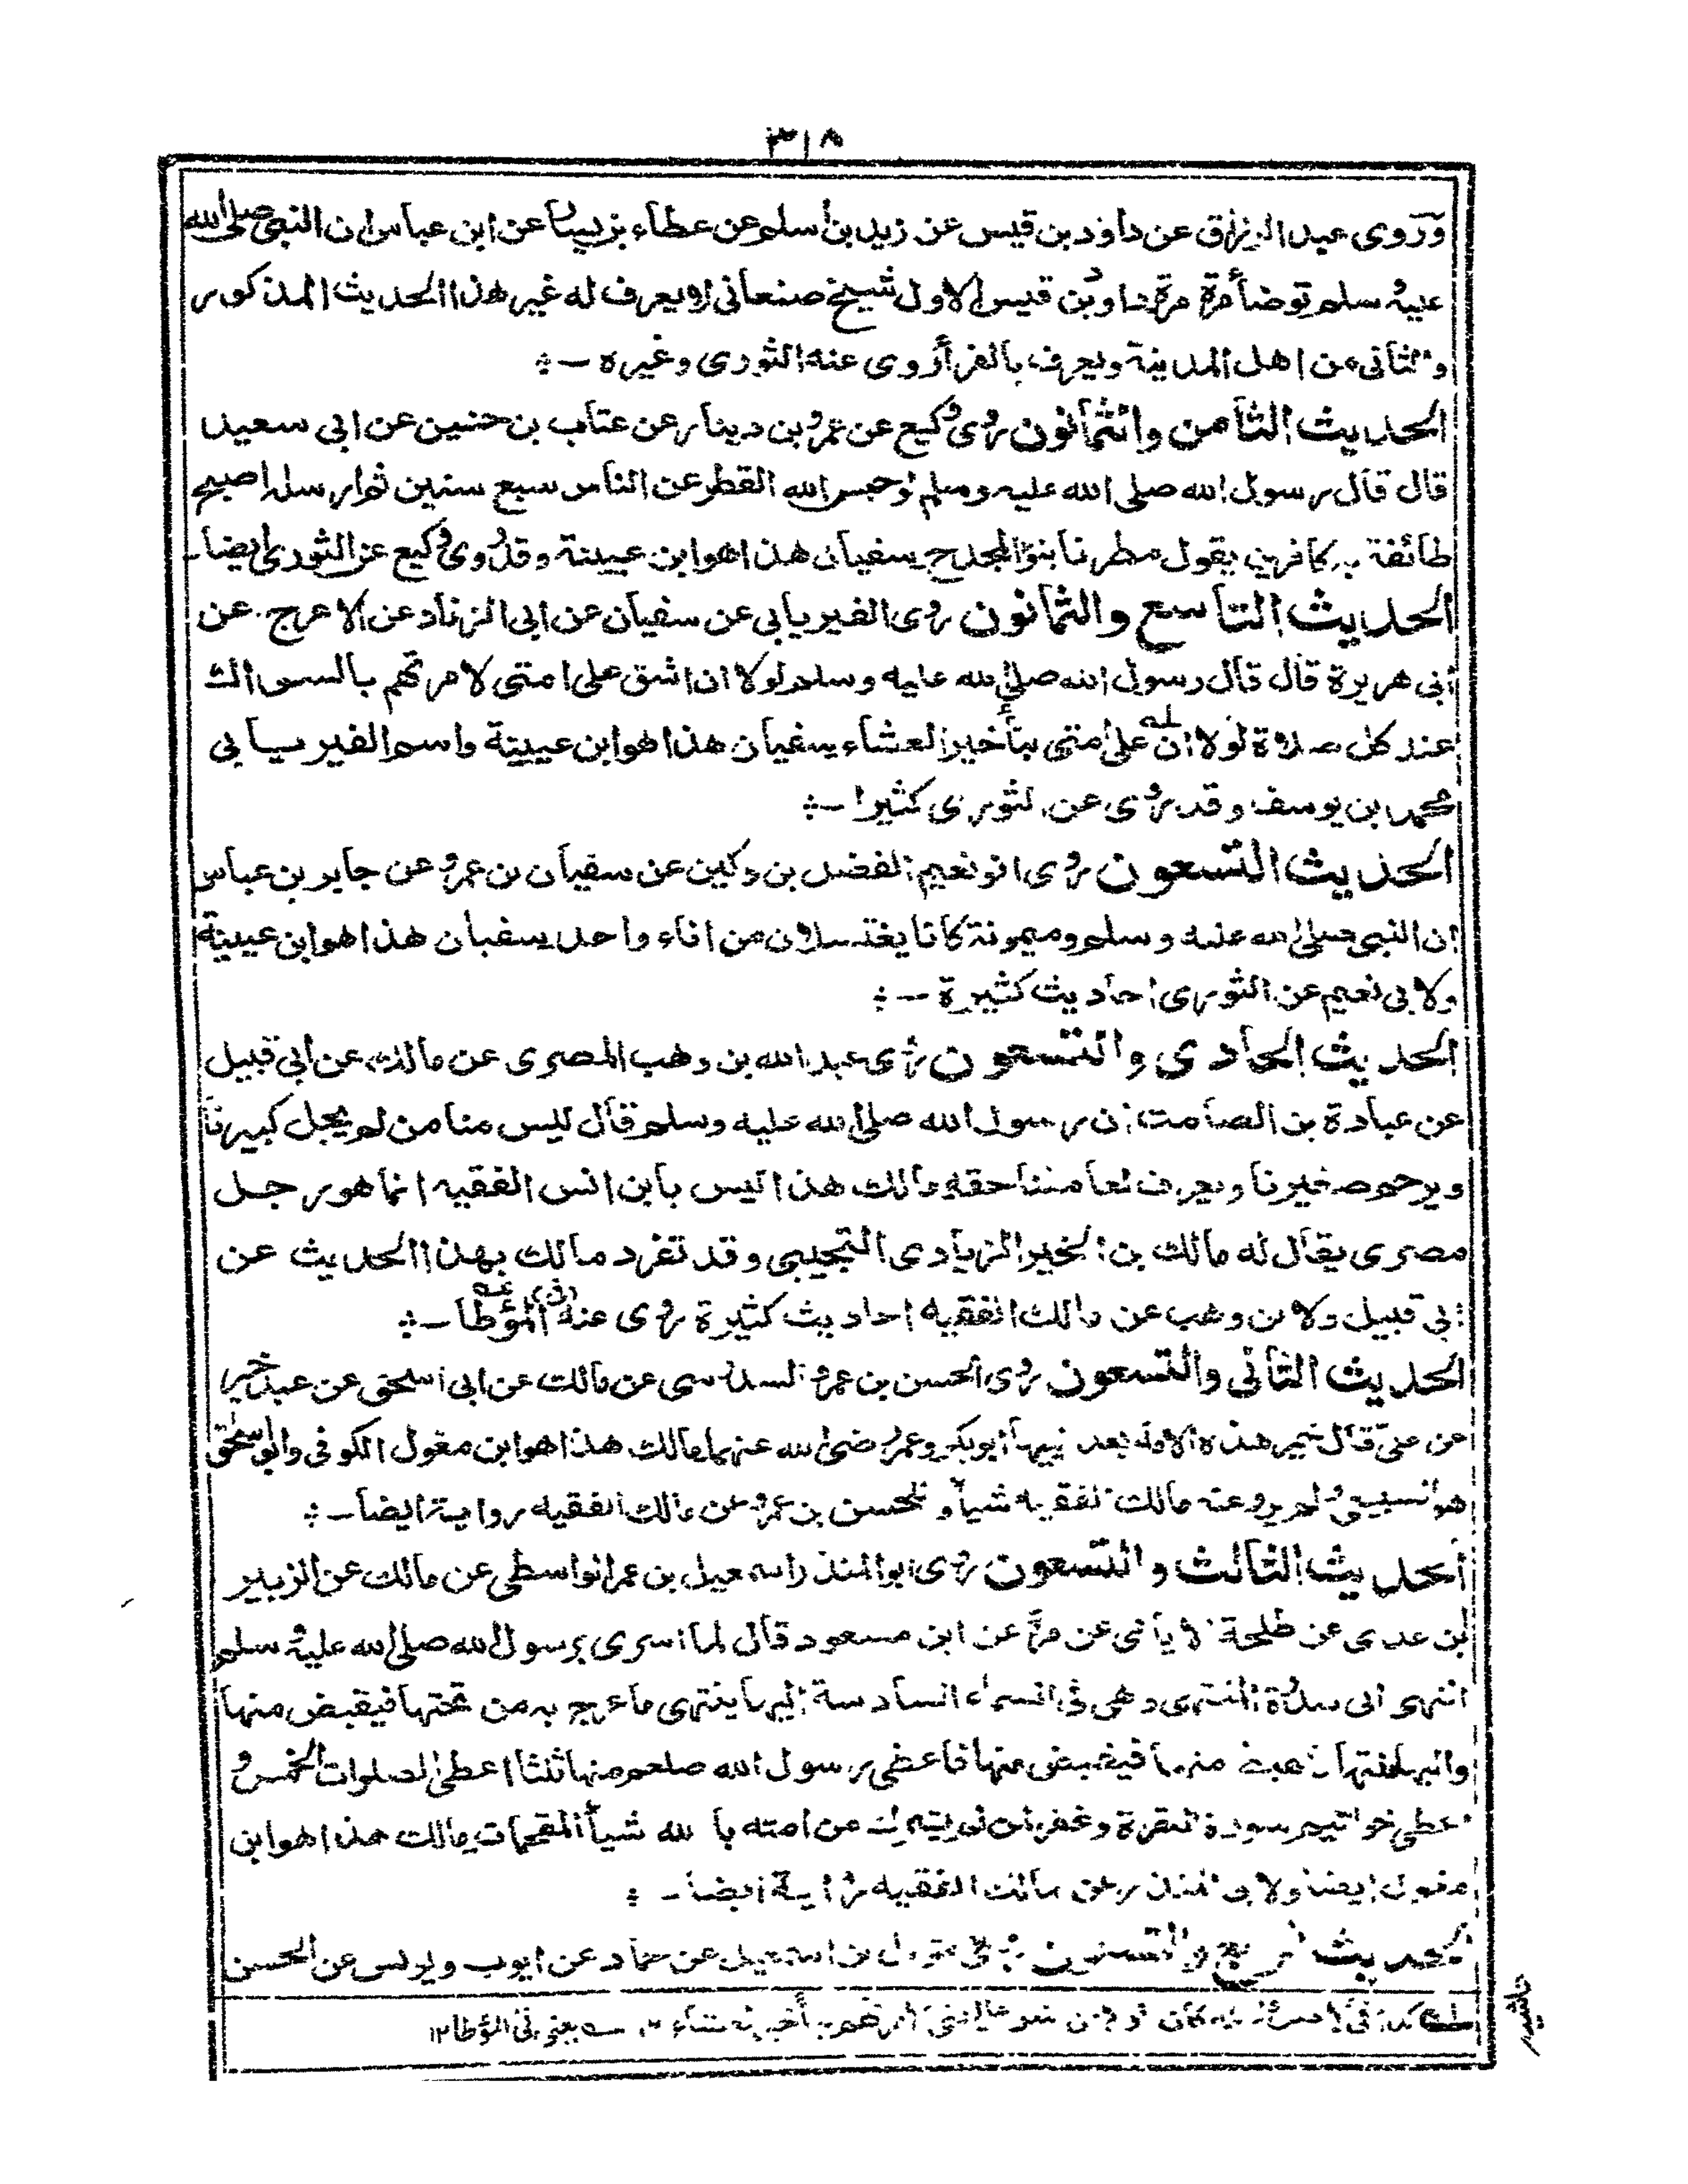 ٣١٨
وروى عبد الرزاق عن داود بن قيس عن زيد بن أسلم عن عطاء بن يسار عن ابن عباس ان النبي صلى الله
عليه سلم توضأ مرة مرة داود بن قيس الاول شيخ صنعاني لا يعرف له غير هذا الحديث المذكور
والثاني من اهل المدينة ويعرف بالفرأ روى عنه الثورى وغيره ــ
الحديث الثامن والثمانون روى وكيع عن عمرو بن دينار عن عتاب بن حنين عن ابي سعيد
قال قال رسول الله صلى الله عليه وسلم لو حبس الله القطر عن الناس سبع سنين ثم ارسله اصبح
طائفة به كافرين يقول مطرنا بنؤ المجدح سفيان هذا هو ابن عيينة وقد روى وكيع عن الثورى ايضا ــ
الحديث التاسع والثمانون روى الفيريابي عن سفيان عن ابي الزناد عن الاعرج عن
ابي هريرة قال قال رسول الله صلى الله عليه وسلم لولا ان اشق على امتى لامرتهم بالسواك
عند كل صلاة لولا ان على امتى بتأخير العشاء سفيان هذا هو ابن عيينة واسم الفيريابي
محمد بن يوسف وقد روى عن الثورى كثيرا ــ
الحديث التسعون روى ابو نعيم الفضل بن دكين عن سفيان بن عمرو عن جابر بن عباس
ان النبي صلى الله عليه وسلم وميمونة كانا يغتسلان من اناء واحد سفيان هذا هو ابن عيينة
ولابي نعيم عن الثورى احاديث كثيرة ــ
الحديث الحادى والتسعون روى عبد الله بن وهب المصرى عن مالك عن ابي قبيل
عن عبادة بن الصامت ان رسول الله صلى الله عليه وسلم قال ليس منا من لم يجل كبيرنا
ويرحم صغيرنا ويعرف لعامنا حقه مالك هذا ليس بابن انس الفقيه انما هو رجل
مصرى يقال له مالك بن الخير الزيادى التجيبي وقد تفرد مالك بهذا الحديث عن
ابي قبيل ولابن وهب عن مالك الفقيه احاديث كثيرة روى عنه (في) المؤطا ــ
الحديث الثاني والتسعون روى الحسن بن عمرو السدوسى عن مالك عن ابي اسحق عن عبد خير
عن على قال خير هذه الامة بعد نبيها ابو بكر وعمر رضى الله عنهما مالك هذا هو ابن مغول الكوفي وابو اسحق
هو السبيعى ولم يرو عنه مالك الفقيه شيأ وللحسن بن عمرو عن مالك الفقيه رواية ايضا ــ
الحديث الثالث والتسعون روى ابو المنذر اسمعيل بن عمر الواسطى عن مالك عن الزبير
بن عدى عن طلحة اليأمى عن مرة عن ابن مسعود قال لما اسرى برسول الله صلى الله عليه سلم
انتهى الى سدرة المنتهى وهى في السماء السادسة اليها ينتهى ما عرج به من تحتها فيقبض منها
واليها ينتهى ما اهبط منها فيقبض منها فاعطى رسول الله صلعم منها ثلثا اعطى الصلوات الخمس و
اعطى خواتيم سورة البقرة وغفر لمن لم يشرك من امته بالله شيأ المقحمات مالك هذا هو ابن
مغول ايضا ولابي المنذر عن مالك الفقيه رواية ايضا ــ
الحديث الرابع والتسعون روى مؤمل بن اسمعيل عن حماد عن ايوب ويونس عن الحسن
كذا في الاصل بتأخير العشاء ١٢ يعنى في المؤطا ١٢
حاشيه